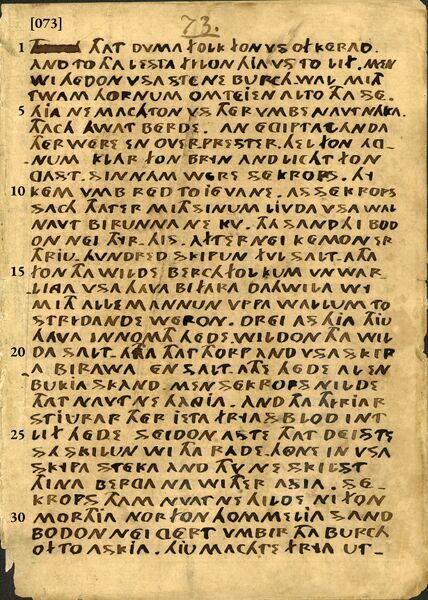 [073]
73.
1 THAT DVMA FOLK FON VS OFKERAD.
AND TO THA LESTA FILON HIA VS TO LIF. MEN
WI HEDON VSA STENE BURCH WAL MITH
TWAM HORNUM OMTEIEN ALTO THA SE.
5 HIA NE MACHTON VS THERUMBE NAVT NAKA.
THACH HWAT BERDE. AN EGIPTALANDA
THER WERE EN OVERPRESTER. HEL FON AG-
NUM KLAR FON BRYN AND LICHT FON
GAST. SIN NAM WERE SEKROPS. HY
10 KEM VMB RED TO IEVANE. AS SEKROPS
SACH THATER MITH SINUM LIUDA VSA WAL
NAVT BIRUNNA NE KV. THA SAND HI BOD
ON NEI THYRHIS. AFTERNEI KEMON ER
THRIU HUNDRED SKIPUN FUL SALT ATHA
15 FON THA WILDE BERCHFOLKUM UNWAR-
LINGA VSA HAVA BIFARA DAHWILA WY
MITH ALLE MANNUN VPPA WALLUM TO
STRIDANDE WERON. DREI AS HIA THIU
HAVA INNOMTH HEDE WILDON THA WIL
20 DA SALT ATHA THAT THORP AND VSA SKIP
A BIRAWA EN SALT ATHE HEDE AL EN
BUKIA SKAND. MEN SEKROPS NILDE
THAT NAVT NE HAGIA. AND THA THRIAR
STIURAR THER IETA FRYAS BLOD INT
25 LIF HEDE SEIDON ASTE THAT DEISTE
SA SKILUN WI THA RADE HONE IN VSA
SKYPA STEKA AND THV NE SKILST
THINA BERGA NA WITHER ASIA. SE-
KROPS THAM NVAT NE HILDE NI FON
30 MORTHIA NOR FON HOMMELIA SAND
BODON NEI GERT VMBIR THA BURCH
OF TO ASKIA. HIU MACHTE FRYA UT-